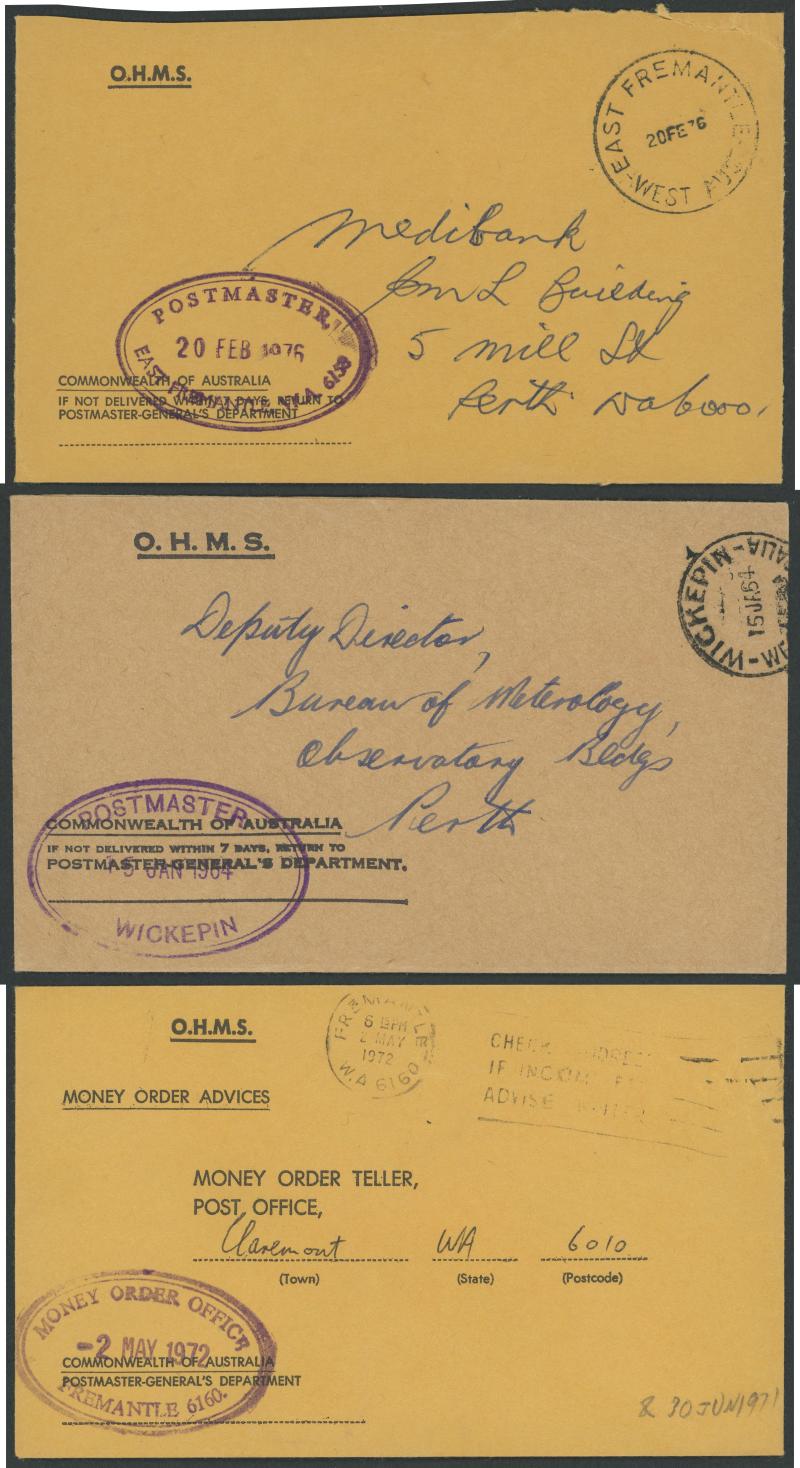 O.H.M.S.
EAST FREMANTLE
20FE76
-WEST AUS
Medibank
CML Building
5 Mill St
Perth Wa 6000.
POSTMASTER,
20 FEB 1976
EAST FREMANTLE W.A 6158
COMMONWEALTH OF AUSTRALIA
IF NOT DELIVERED WITHIN 7 DAYS, RETURN TO
POSTMASTER-GENERAL'S DEPARTMENT
O. H. M. S.
-WICKEPIN-
15JA64
Deputy Director,
Bureau of Meterology,
Observatory Bldgs
Perth
POSTMASTER
COMMONWEALTH OF AUSTRALIA
IF NOT DELIVERED WITHIN 7 DAYS, RETURN TO
15 JAN 1964
POSTMASTER-GENERAL'S DEPARTMENT.
WICKEPIN
O.H.M.S.
FREMANTLE
6 PM
2 MAY
1972
W.A 6160
CHECK ADDRESS
IF INCORRECT
ADVISE
MONEY ORDER ADVICES
MONEY ORDER TELLER,
POST OFFICE,
Claremont WA 6010
(Town) (State) (Postcode)
MONEY ORDER OFFICE
-2 MAY 1972
COMMONWEALTH OF AUSTRALIA
POSTMASTER-GENERAL'S DEPARTMENT
FREMANTLE 6160.
& 30 JUN 1971